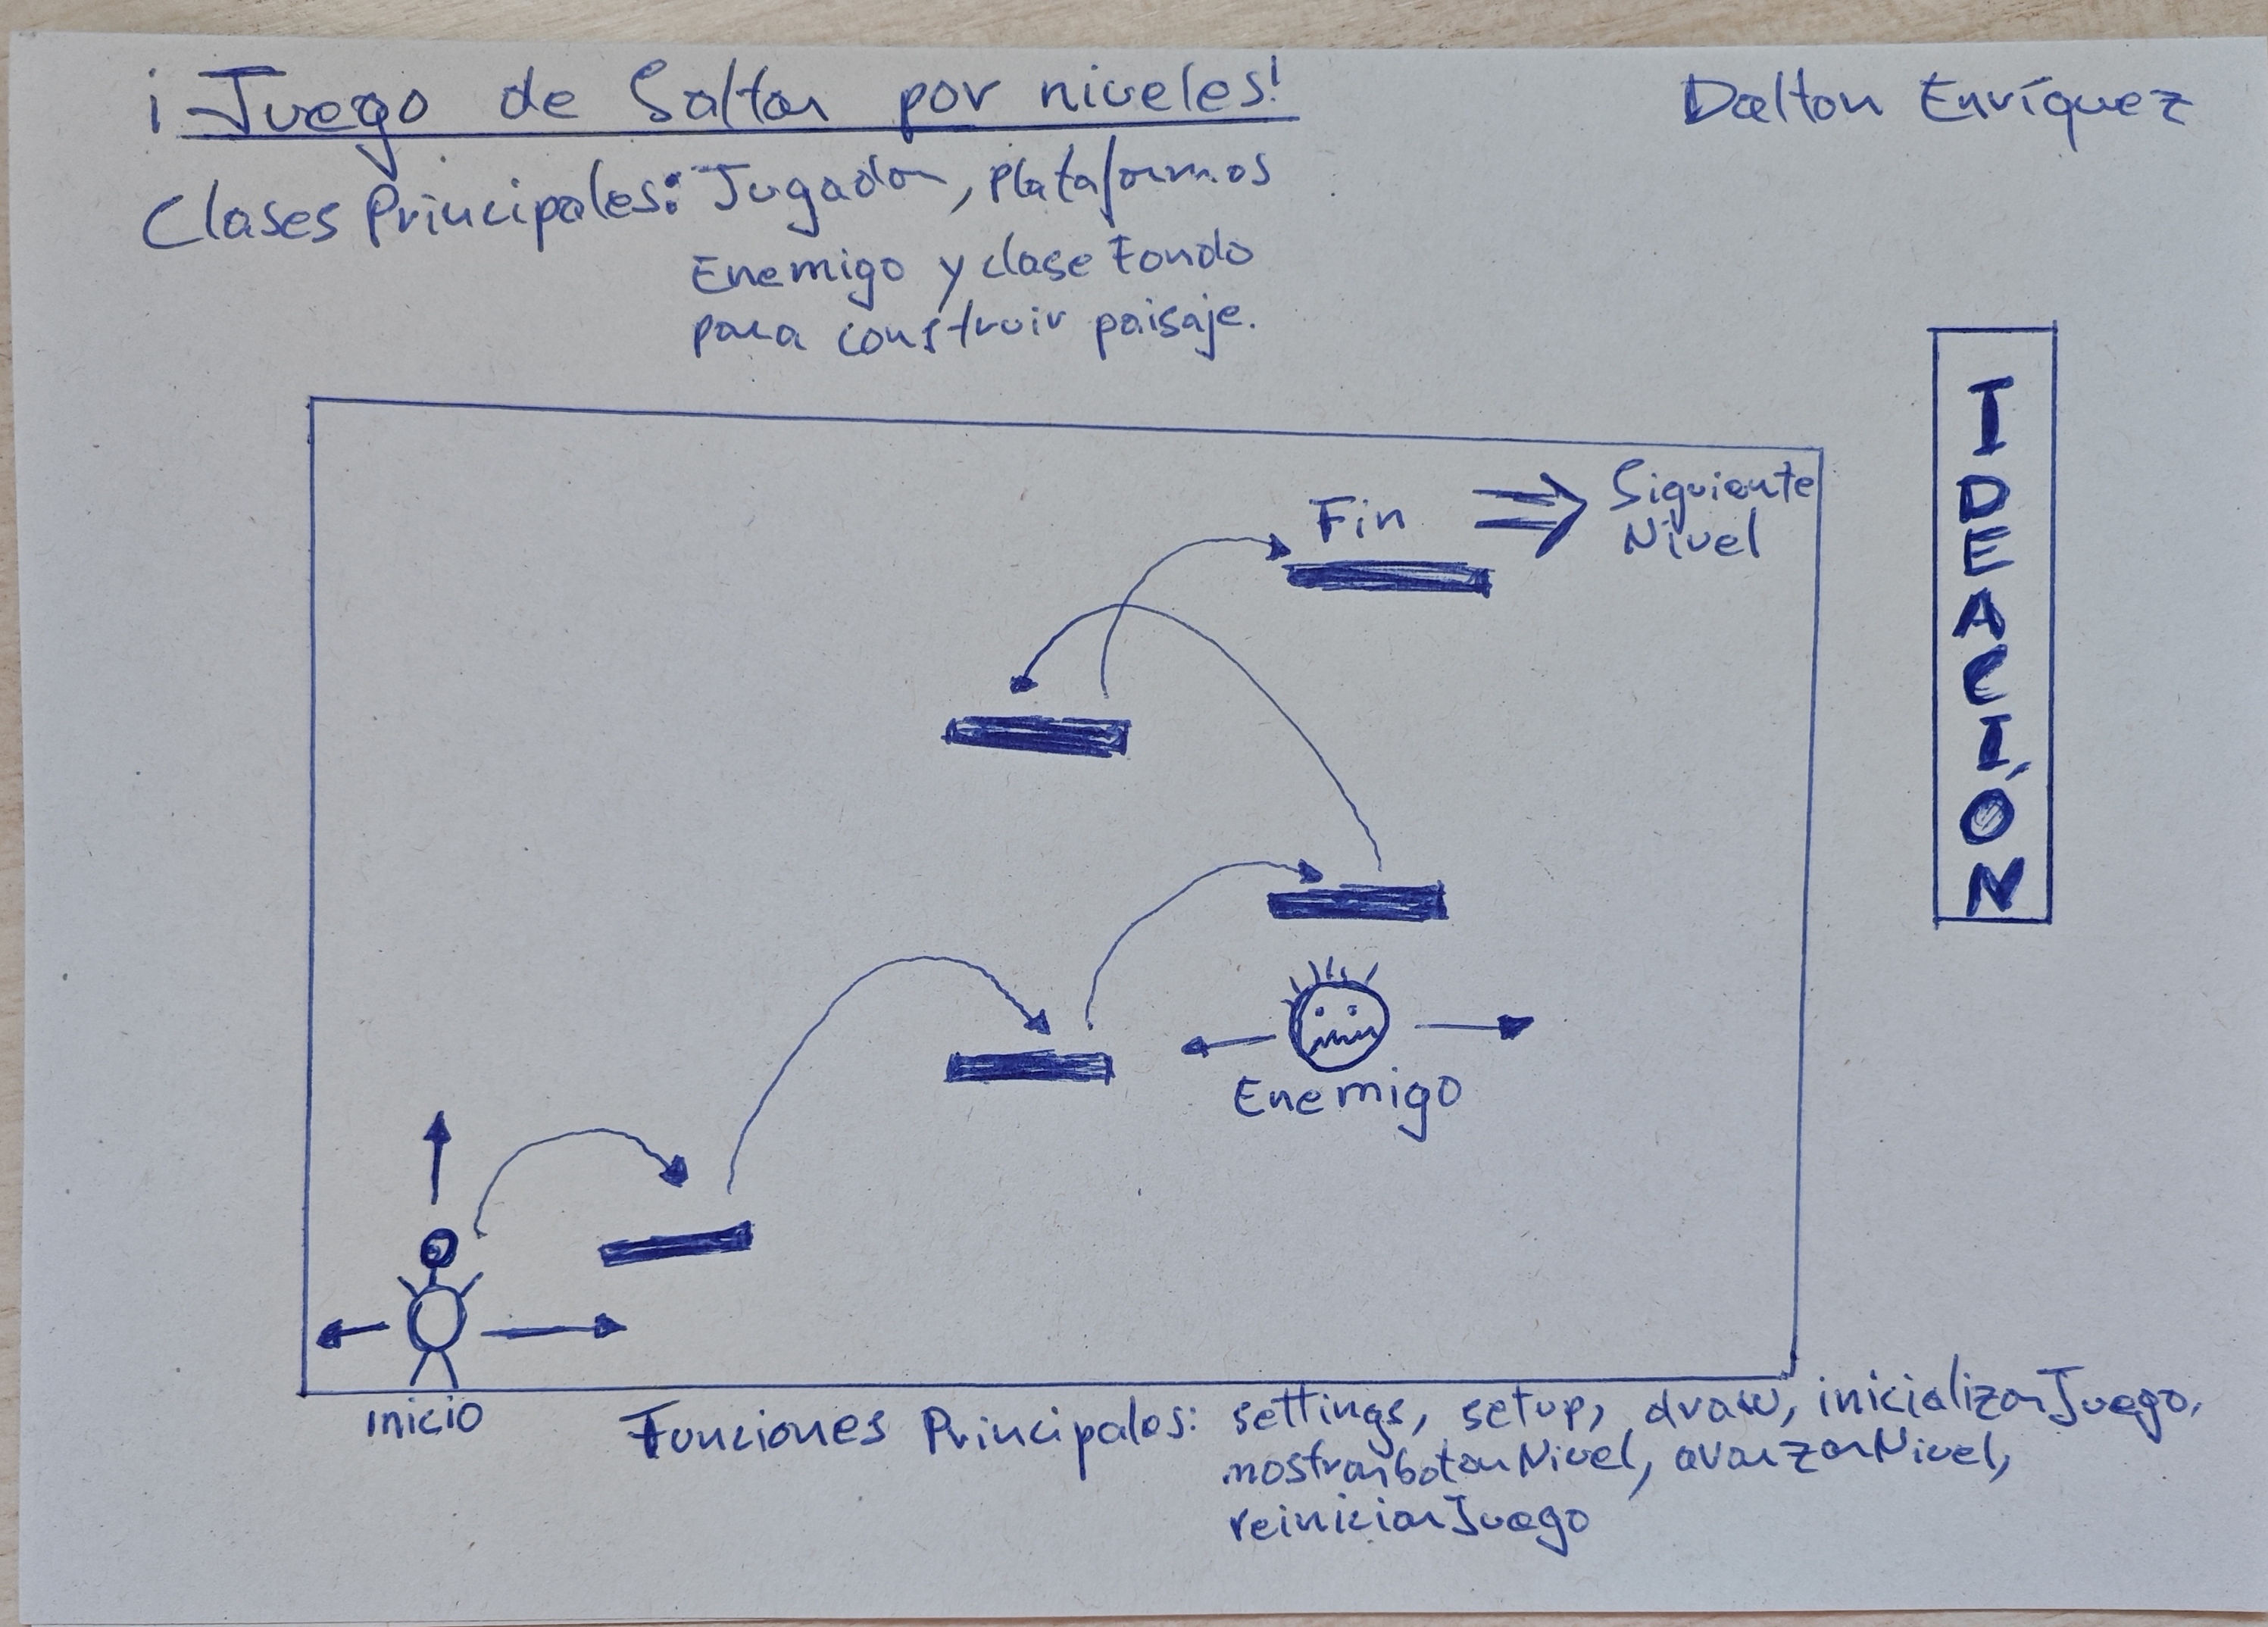 ¡Juego de Saltar por niveles!
Dalton Enríquez
Clases Principales: Jugador, Plataformas
Enemigo y clase Fondo
para construir paisaje.
IDEACIÓN
Fin ⇒ Siguiente
Nivel
Enemigo
inicio
Funciones Principales: settings, setup, draw, inicializarJuego,
mostrarbotonNivel, avanzarNivel,
reiniciarJuego